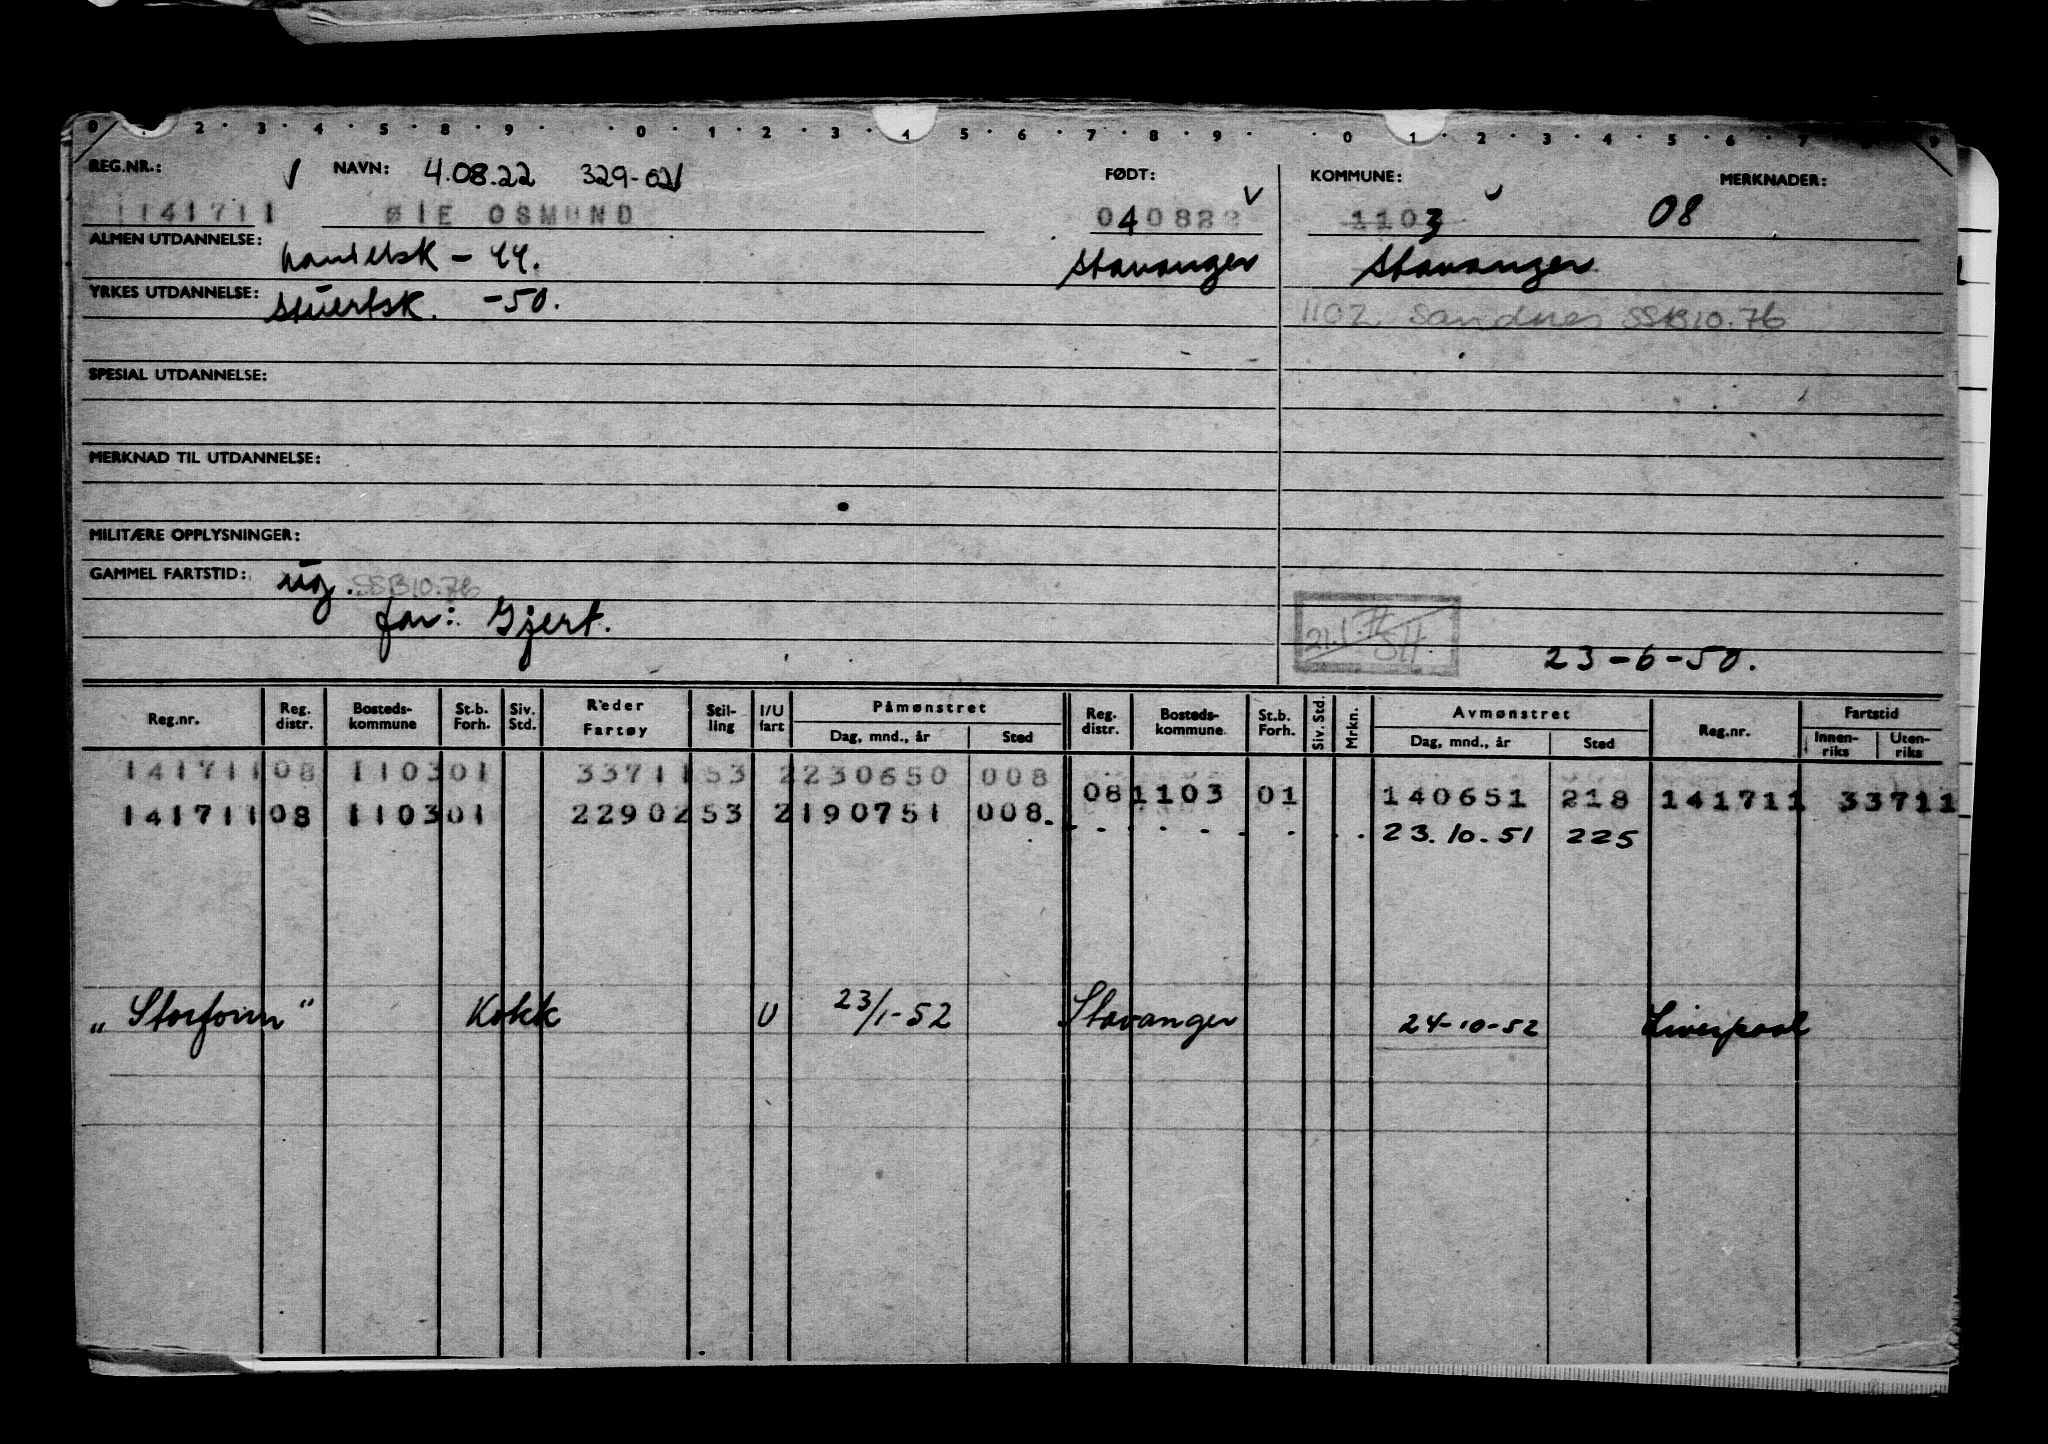 0 · · 2 · 3 · 4 · 5 · 8 · 9 · · 0 · 1 · 2 · 3 · 4 5 · 6 · 7 · 8 · 9 · · 0 · 1 · 2 · 3 · 4 · 5 · 6 · 7 9
REG.NR.: NAVN: 4.08.22 329-02 FØDT: KOMMUNE: MERKNADER:
141711 ØIE OSMUND 040822 1103 08
ALMEN UTDANNELSE: handelsk - 44. Stavanger Stavanger
YRKES UTDANNELSE: stuertsk. -50. 1102 Sandnes SSB10.76
SPESIAL UTDANNELSE:
MERKNAD TIL UTDANNELSE:
MILITÆRE OPPLYSNINGER:
GAMMEL FARTSTID: SSB10.76
far: Gjert. 21.
23-6-50.
Reg.nr. Reg. distr. Bosteds-kommune St.b. Forh. Siv. Std. Reder Fartøy Stil-ling I/U fart Påmønstret Dag, mnd., år Sted Reg. distr. Bosteds-kommune St.b. Forh. Siv. Std. Mrkn. Avmønstret Dag, mnd., år Sted Reg.nr. Fartstid Innen-riks Uten-riks
141711 08 1103 01 33711 53 2 230650 008 08 1103 01 140651 218 141711 33711
141711 08 1103 01 22902 53 2 190751 008. 23.10.51 225
„Storfonn" Kokk U 23/1-52 Stavanger 24-10-52 Liverpool